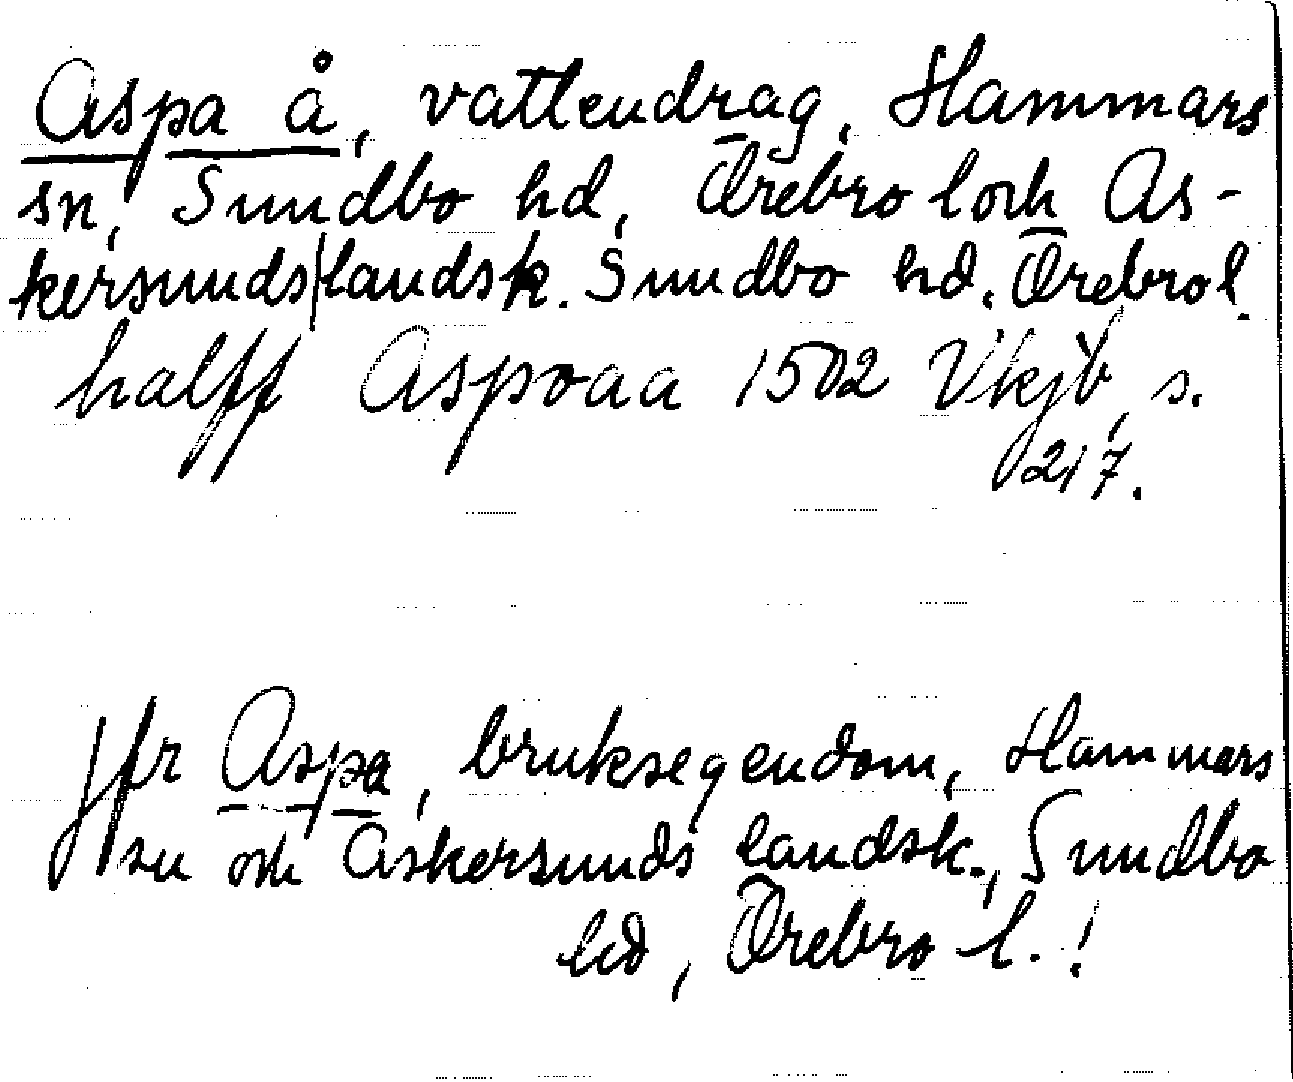 Aspa å, vattendrag, Hammars
sn, Sundbo hd, Örebro l och As-
kersunds|landsk. Sundbo hd. Örebro l.
halff Aspoaa 1502 Vkjb, s.
217.
Jfr Aspa, bruksegendom, Hammars
sn och Askersunds landsk., Sundbo
hd, Örebro l.!